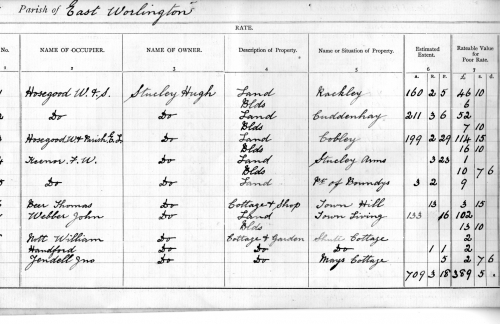 Parish of East Worlington
RATE.
No. NAME OF OCCUPIER. NAME OF OWNER. Description of Property. Name or Situation of Property. Estimated Extent. Rateable Value for Poor Rate.
1 2 3 4 5 6 7
A. R. P. £ s. d.
1 Hosegood W. & S. Stucley Hugh Land Rackley 160 2 5 46 10
Blds 6
2 Do Do Land Cuddenhay 211 3 6 52
Blds 7 10
3 Hosegood W & Parish E. J. Do Land Cobley 199 2 29 114 15
Blds 16 10
4 F. W. Do Land Stucley Arms 3 23 1
Blds 10 7 6
5 Do Do Land Pt of Bowndys 3 2 9
6 Beer Thomas Do Cottage & Shop Town Hill 13 3 15
7 Webber John Do Land Town Living 133 16 102
Blds 13 10
Nott William Do Cottage & Garden Cottage 2
Handford Do Do Do 1 1 2
Jno Do Do Mays Cottage 5 2 7 6
709 3 18 389 5